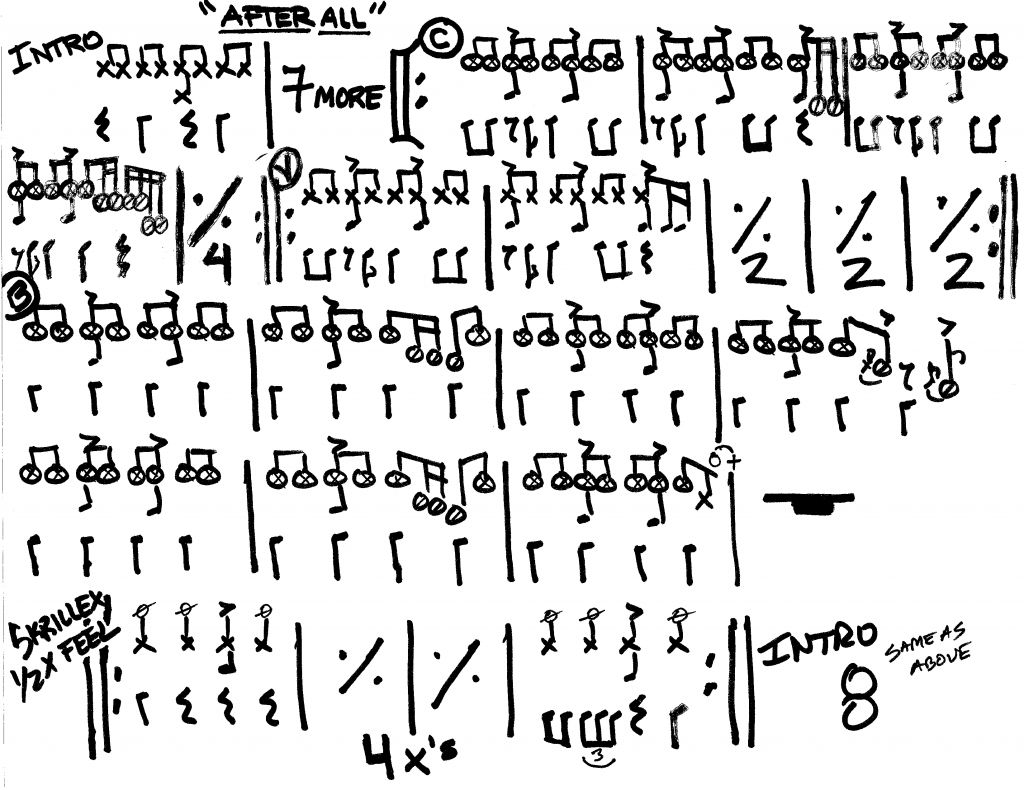 "AFTER ALL"
INTRO
7 MORE
C
4
V
2
2
2
B
SKRILLEXY
1/2 X FEEL
4 X's
3
INTRO
8
SAME AS
ABOVE